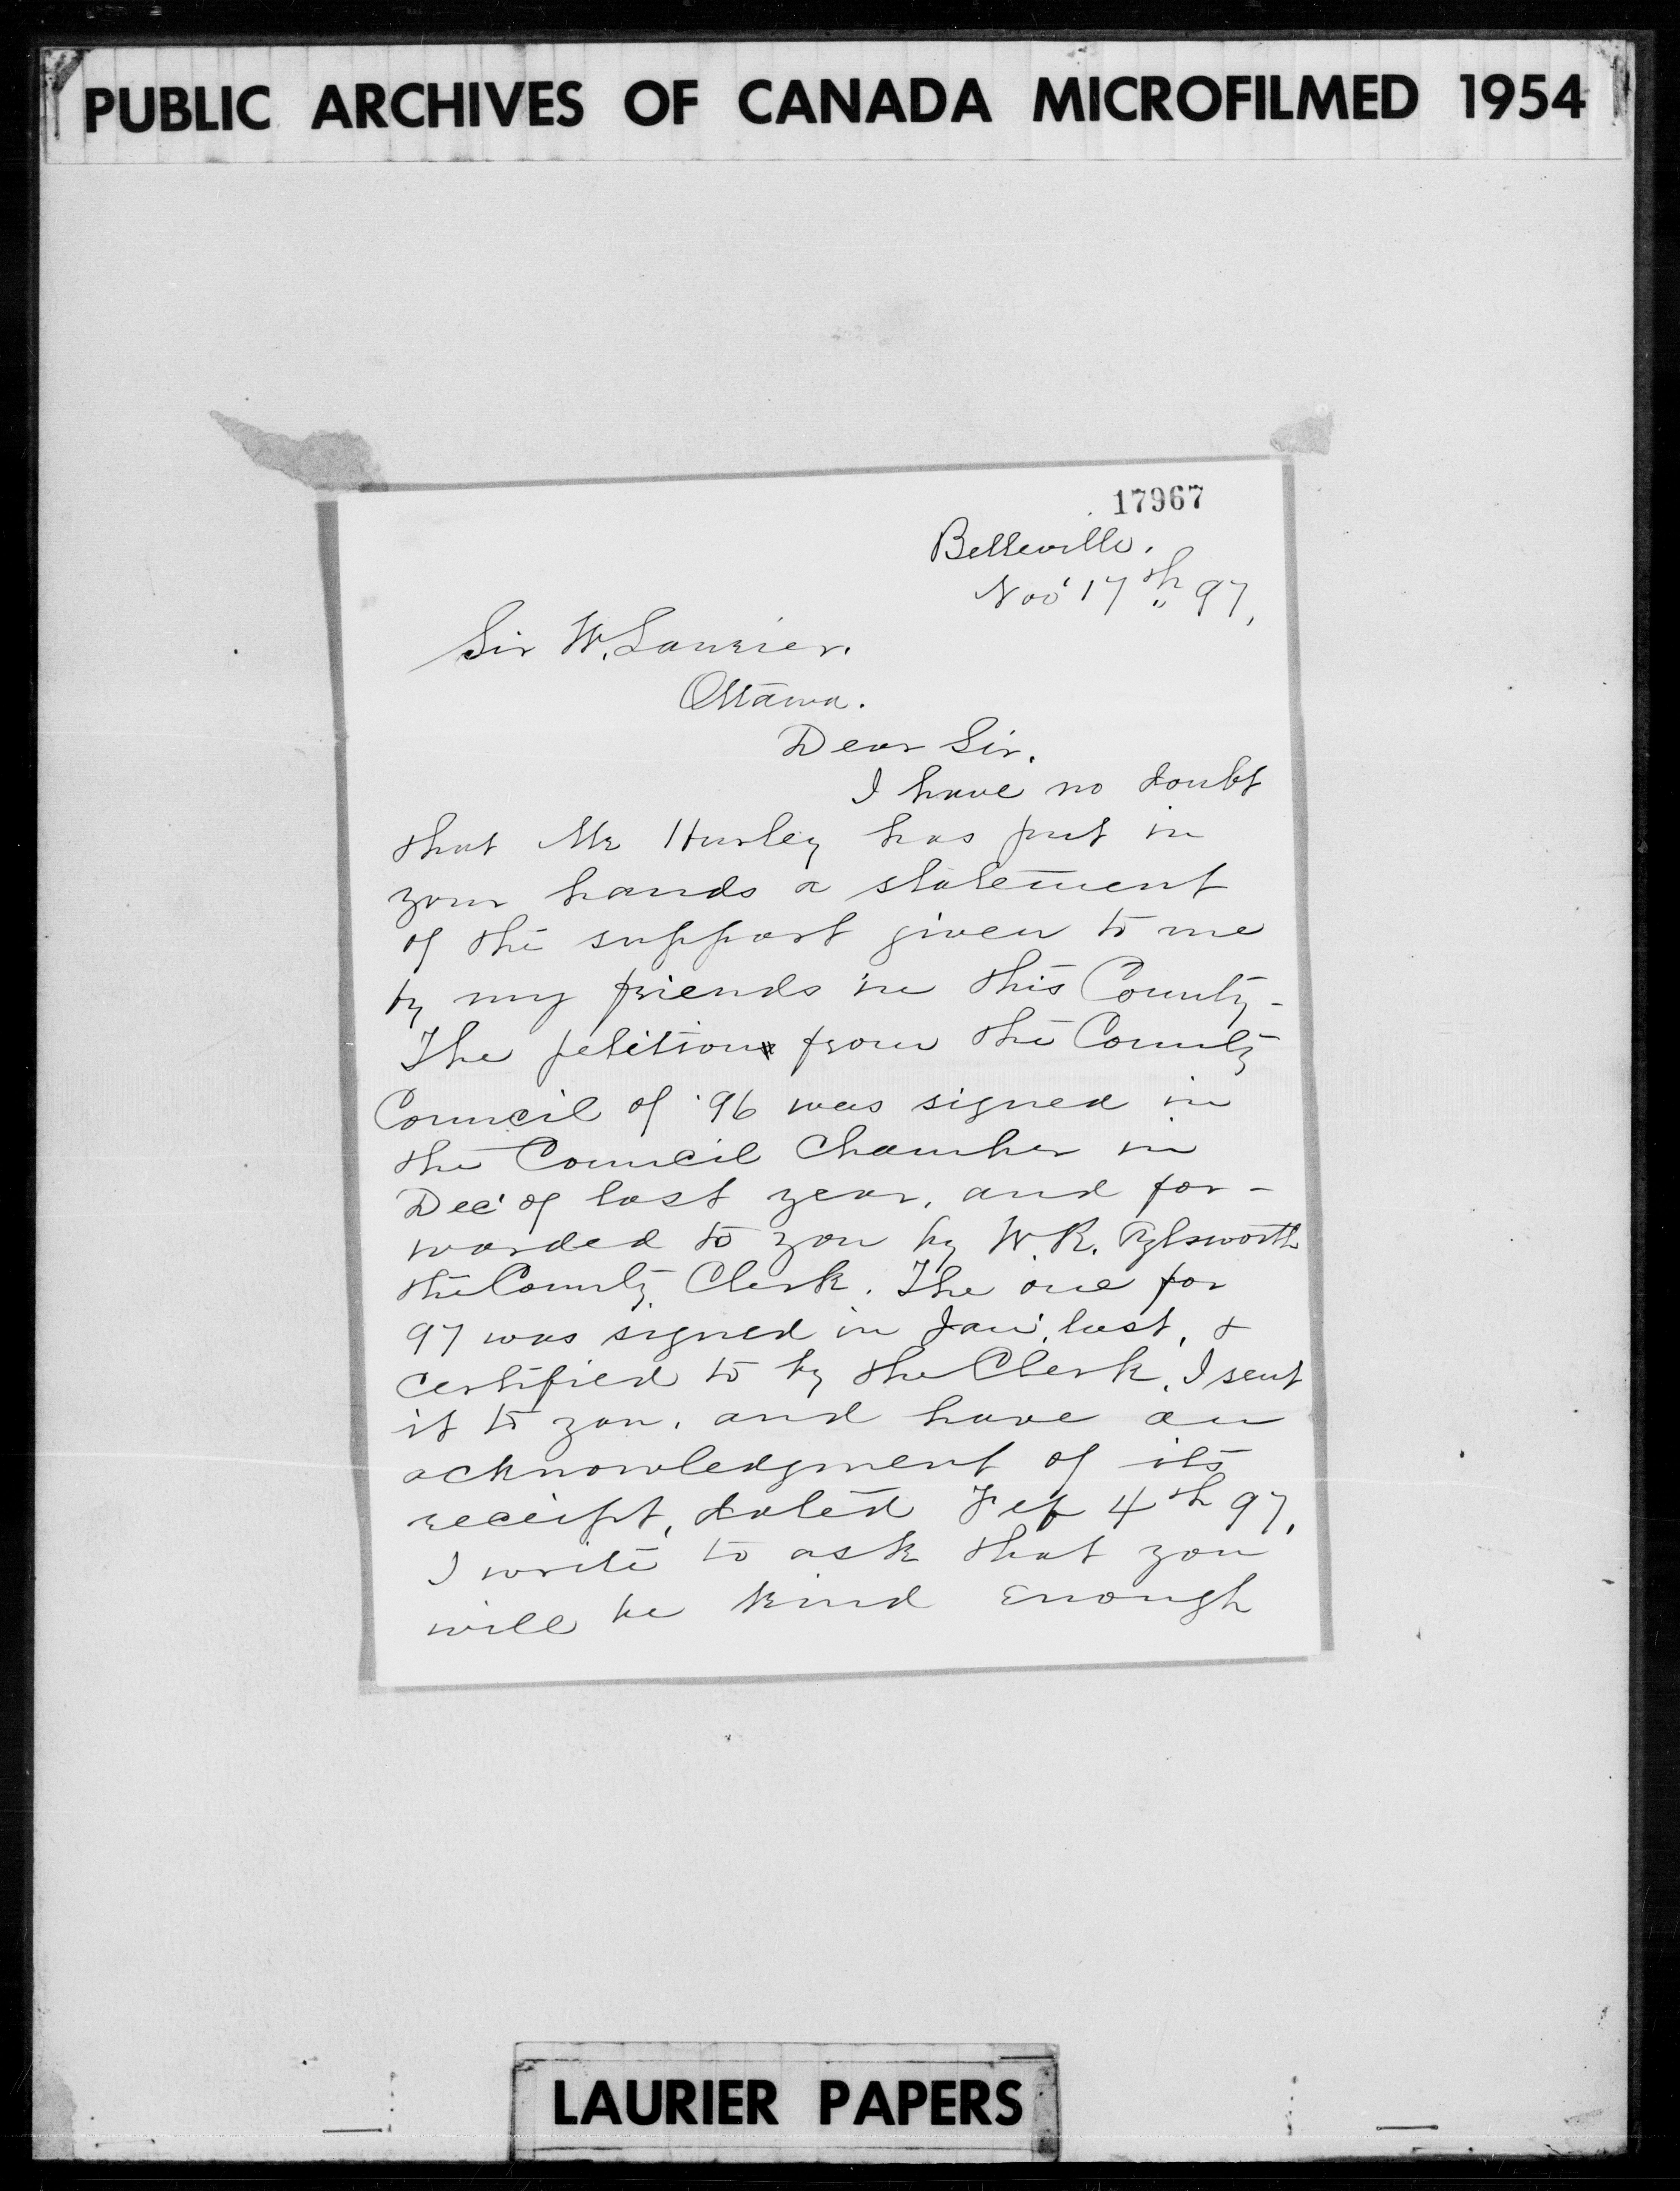 PUBLIC ARCHIVES OF CANADA MICROFILMED 1954
17967
Belleville.
Nov' 17th 97,
Sir W. Laurier.
Ottawa.
Dear Sir.
I have no doubt
that Mr Hurley has put in
your hands a statement
of the support given to me
by my friends in this County-
The petition from the County
Council of '96 was signed in
the Council Chamber in
Dec' of last year, and for-
warded to you by W.R. Aylsworth
the County Clerk. The one for
97 was signed in Jan', last, &
certified to by the Clerk, I sent
it to you, and have an
acknowledgment of its
receipt, dated Feb 4th 97,
I write to ask that you
will be kind enough
LAURIER PAPERS